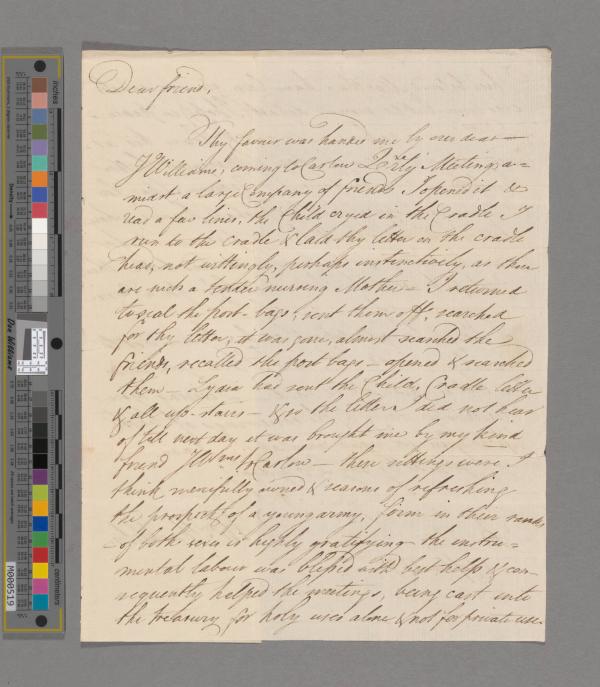 Dear friend,
Thy favour was handed me by our dear
J Williams, coming to Carlow Qrtly Meeting, a=
midst a large Company of friends I opened it &
read a few lines, the Child cryed in the Cradle I
run to the cradle & laid thy letter on the cradle
head, not wittingly, perhaps instinctively, as thou
art such a tender nursing Mother - I returned
to seal the post-bags, sent them off, searched
for thy letter, it was gone, almost searched the
friends, recalled the post bags - opened & searched
them - Lydia had sent the Child, Cradle letter
& all up-stairs - & so the letter I did not hear
of till next day it was brought me by my kind
friend to Carlow - these sittings were I
think mercifully owned & seasons of refreshing
the prospect of a young army, firm in their ranks
- of both sexes is highly gratifying the instru=
mental labour was blessed with best help & con=
sequently helped the meetings, being cast into
the treasury for holy uses alone & not for private use.
inches
centimeters
Density
Don Williams
M000519